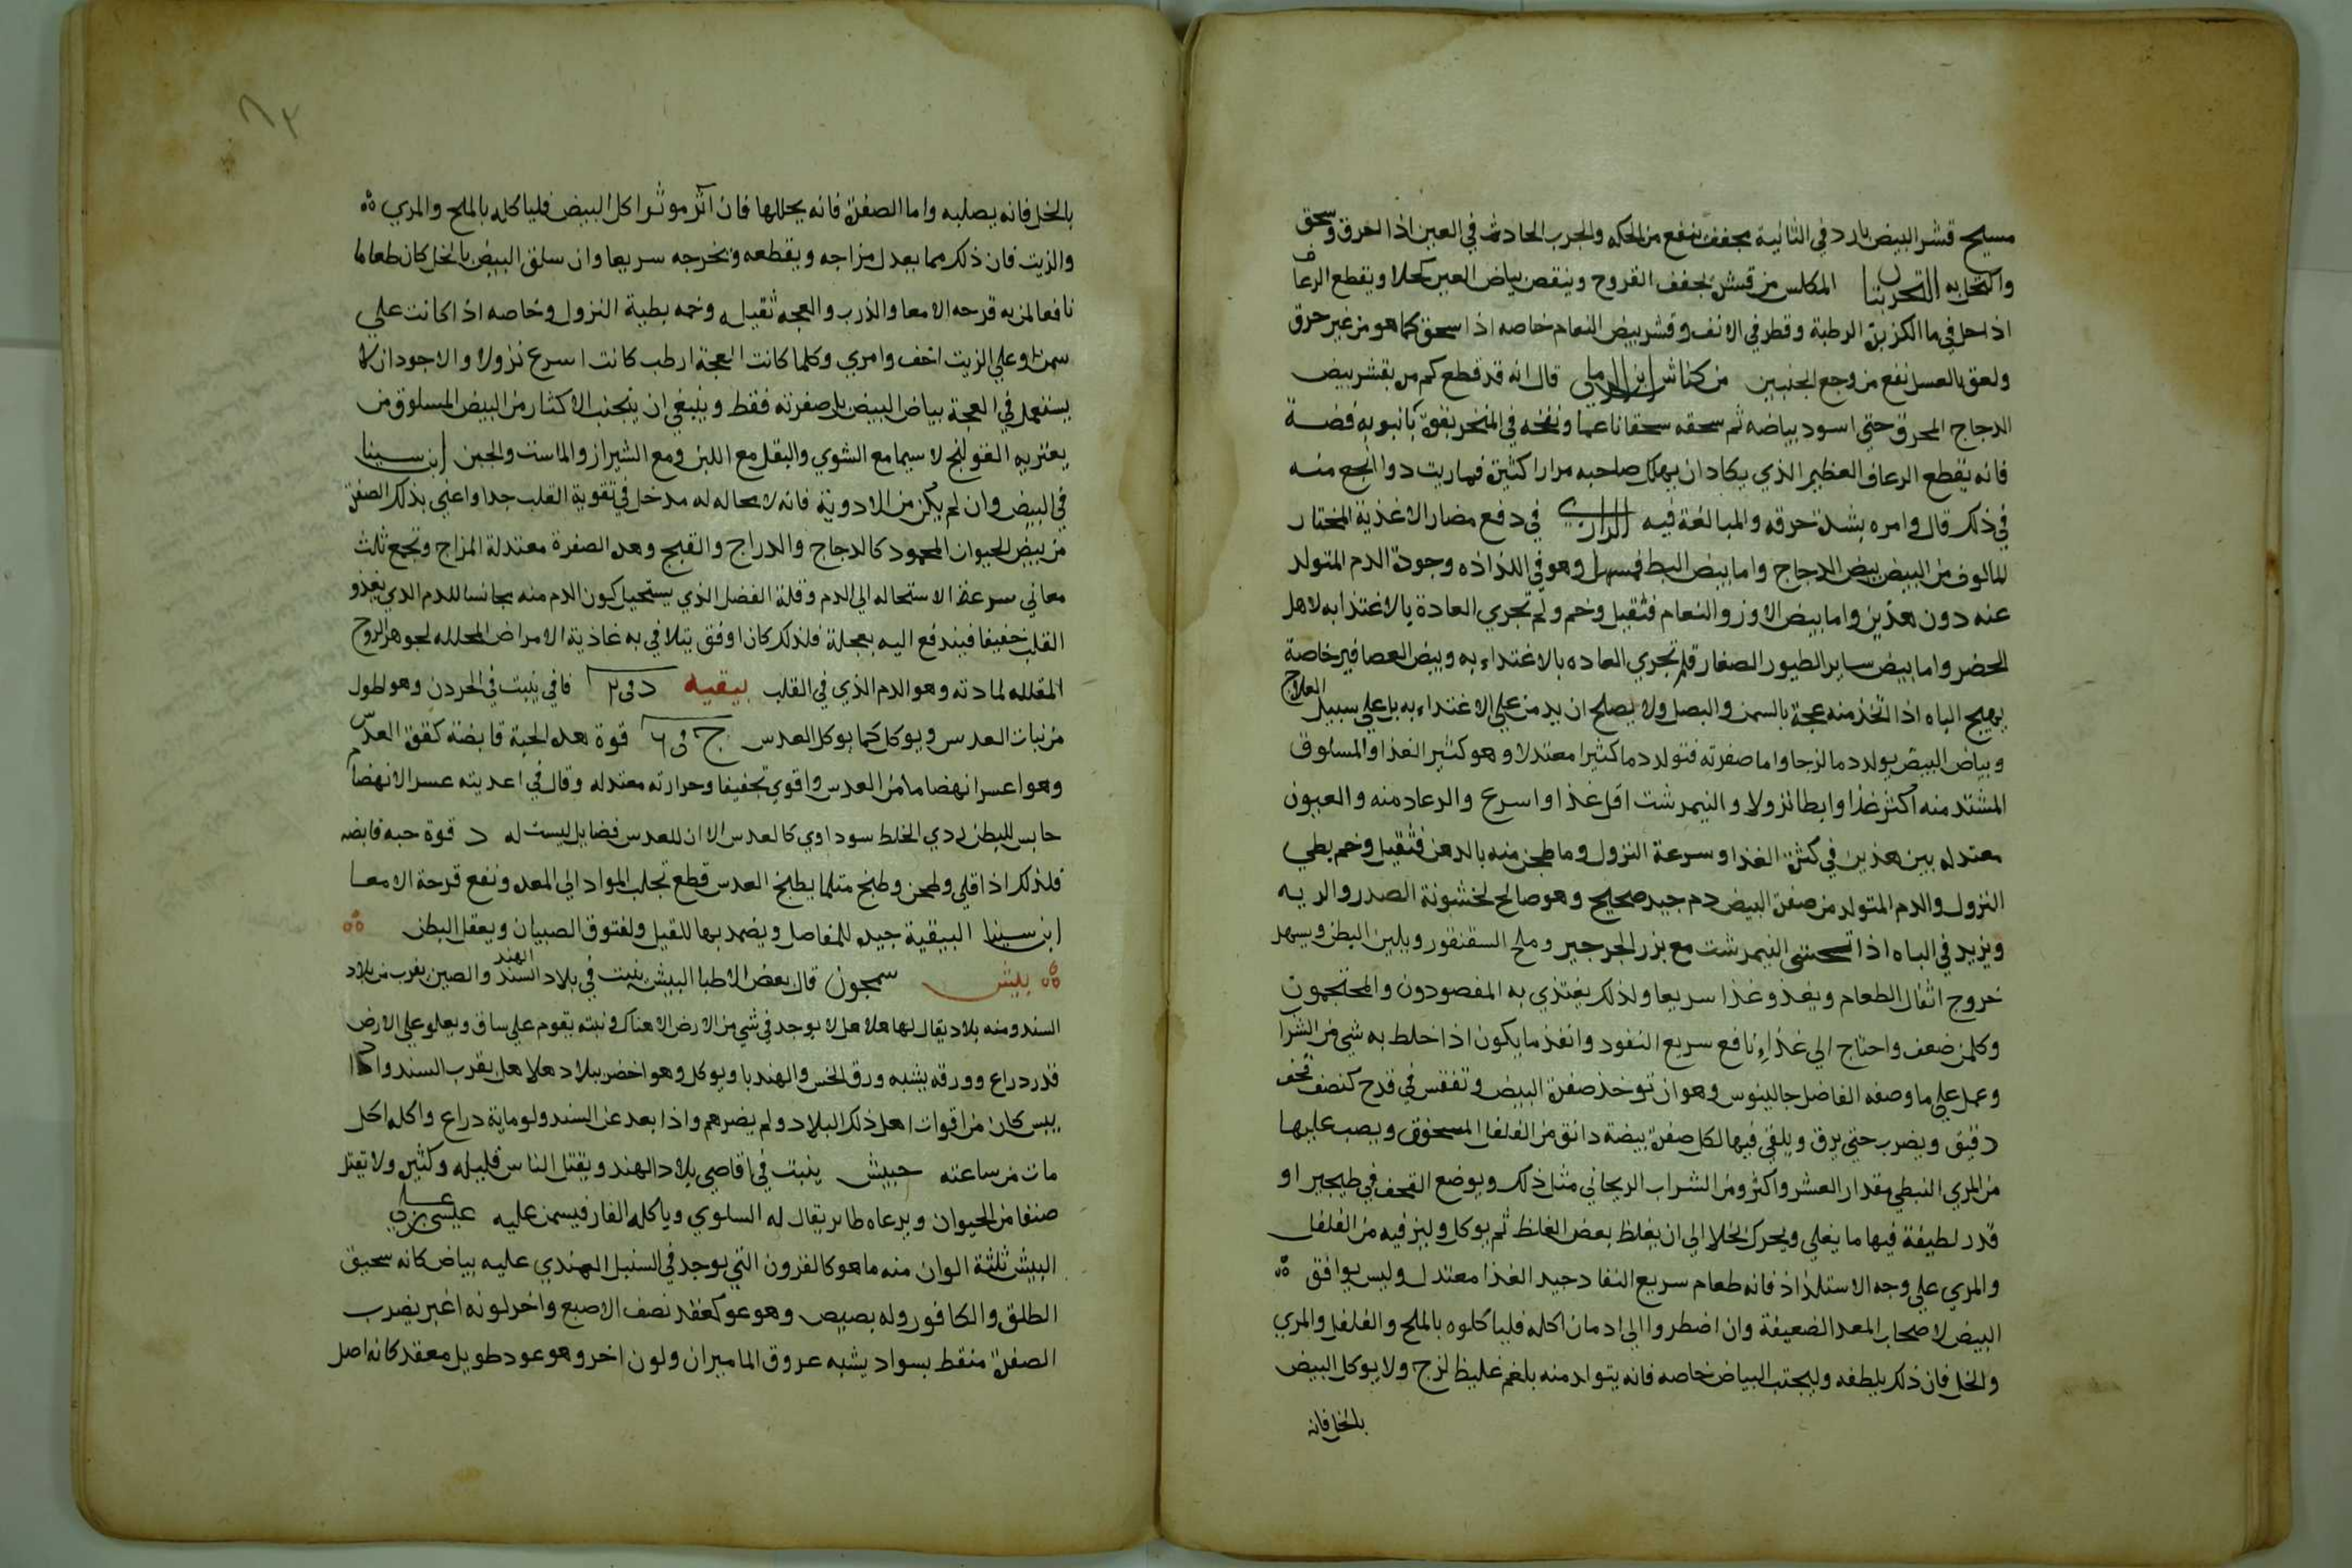 مسيح قشر البيض بارد في الثانية مجفف ينفع من الحكه والجرب الحادث في العين اذا احرق وسحق
واكتحل به التجربتنا المكلس من قشره يجفف القروح وينقص بياض العين كحلا ويقطع الرعاف
اذا حل في ما الكزبرة الرطبة وقطر في الانف وقشر بيض النعام خاصه اذا سحق كما هو من غير حرق
ولعق بالعسل نفع من وجع الجنبين من كناش قال انه قد قطع كم من بقشر بيض
الدجاج المحرق حتي اسود بياضه ثم سحقه سحقا ناعما ونفخه في المنخر بقوة بانبوبه فضة
فانه يقطع الرعاف العظيم الذي يكاد ان يهلك صاحبه مرارا كثيرة فما رايت دوا انجع منه
في ذلك قال وامره بشدة حرقه والمبالغة فيه الرازي في دفع مضار الاغذية المختار
المالوف من البيض بيض الدجاج واما بيض البط فمسهل وهو في اللذاذه وجودة الدم المتولد
عنه دون هذين واما بيض الاوز والنعام فثقيل وخم ولم تجري العادة بالاغتذا به لاهل
الحضر واما بيض ساير الطيور الصغار فلم تجري العاده بالاغتداء به وبيض العصافير خاصة
يهيج الباه اذا اتخذ منه عجة بالسمن والبصل ولا يصلح ان يدمن علي الاغتداء به بل علي سبيل العلاج
وبياض البيض يولد دما لزجا واما صفرته فتولد دما كثيرا معتدلا وهو كثير الغذا والمسلوق
المشتد منه اكثر غذا وابطا نزولا والنيمرشت اقل غذا واسرع والرعاد منه والعيون
معتدله بين هذين في كثرة الغذا وسرعة النزول وما طجن منه بالدهن فثقيل وخم بطي
النزول والدم المتولد من صفرة البيض دم جيد صحيح وهو صالح لخشونة الصدر والريه
ويزيد في الباه اذا تحسى النيمرشت مع بزر الجرجير وملح السقنقور ويلين البطن ويسهل
خروج اثفال الطعام ويغذو غذا سريعا ولذلك يغتذي به المفصودون والمحتجمون
وكل من ضعف واحتاج الي غذاء نافع سريع النفود وانفذ ما يكون اذا خلط به شي من الشراب
وعمل علي ما وصفه الفاضل جالينوس وهو ان توخذ صفرة البيض وتفقس في قدح كنصف قحف
دقيق ويضرب حتي يرق ويلقي فيها لكل صفرة بيضة دانق من الفلفل المسحوق ويصب عليها
من المري النبطي مقدار العشر واكثر ومن الشراب الريحاني مثل ذلك ويوضع القحف في طيجير او
قدر لطيفة فيها ما يغلي ويحرك بخلال الي ان يغلظ بعض الغلظ ثم يوكل وليز فيه من الفلفل
والمري علي وجه الاستلذاذ فانه طعام سريع النفاد جيد الغذا معتدل وليس يوافق
البيض لاصحاب المعد الضعيفة وان اضطروا الي ادمان اكله فلياكلوه بالملح والفلفل والمري
والخل فان ذلك يلطفه وليجتنب البياض خاصه فانه يتولد منه بلغم غليظ لزج ولا يوكل البيض
بالخل فانه
بالخل فانه يصلبه واما الصفرة فانه يحللها فان آثر موثر اكل البيض فلياكله بالملح والمري
والزيت فان ذلك مما يعدل مزاجه ويقطعه ويخرجه سريعا وان سلق البيض بالخل كان طعاما
نافعا لمن به قرحه الامعا والذرب والعجه ثقيله وخمه بطية النزول وخاصه اذا كانت علي
سمن وعلي الزيت اخف وامري وكلما كانت العجة ارطب كانت اسرع نزولا والاجود ان لا
يستعمل في العجة بياض البيض بل صفرته فقط وينبغي ان يتجنب الاكثار من البيض المسلوق من
يعتريه القولنج لا سيما مع الشوي والبقل مع اللبن ومع الشيراز والماست والجبن ابن سينا
في البيض وان لم يكن من الادوية فانه لا محاله له مدخل في تقوية القلب جدا واعني بذلك الصفرة
من بيض الحيوان المحمود كالدجاج والدراج والقبج وهده الصفرة معتدلة المزاج وتجمع ثلث
معاني سرعة الاستحاله الي الدم وقلة الفضل الذي يستحيل كون الدم منه مجانسا للدم الدي يغذو
القلب خفيفا فيندفع اليه بعجلة فلذلك كان اوفق يتلافي به غاذية الامراض المحلله لجوهر الروح
المقلله لمادته وهو الدم الذي في القلب بيقيه د في ٢ فافي ينبت في الحردن وهو اطول
من نبات العدس ويوكل كما يوكل العدس ج في ٦ قوة هده الحبة قابضة كقوة العدس
وهو اعسر انهضاما من العدس واقوي تجفيفا وحرارته معتدله وقال في اغديته عسر الانهضام
حابس للبطن ردي الخلط سوداوي كالعدس الا ان للعدس فضايل ليست له د قوة حبه قابضه
فلذلك اذا قلي وطحن وطبخ مثلما يطبخ العدس قطع تجلب المواد الي المعده ونفع قرحة الامعا
ابن سينا البيقية جيده للمفاصل ويضمد بها للقيل ولفتوق الصبيان ويعقل البطن
بيش سمجون قال بعض الاطبا البيش ينبت في بلاد السند الهند والصين بقرب من بلاد
السند ومنه بلاد يقال لها هلاهل لا يوجد في شي من الارض الا هناك ونبته يقوم علي ساق ويعلو علي الارض
قدر دراع وورقه يشبه ورق الخس والهندبا ويوكل وهو اخضر ببلاد هلاهل بقرب السند واذا
يبس كان من اقوات اهل ذلك البلاد ولم يضرهم واذا بعد عن السند ولو ماية دراع واكله اكل
مات من ساعته حبيش ينبت في اقاصي بلاد الهند ويقتل الناس قليله وكثيره ولا تقتل
صنفا من الحيوان ويرعاه طاير يقال له السلوي وياكله الفار فيسمن عليه عيسى بن علي
البيش ثلثة الوان منه ما هو كالقرون التي توجد في السنبل الهندي عليه بياض كانه سحيق
الطلق والكافور وله بصيص وهو عو كعقد نصف الاصبع واخر لونه اغبر يضرب
الصفرة منقط بسواد يشبه عروق الماميران ولون اخر وهو عود طويل معقد كانه اصل